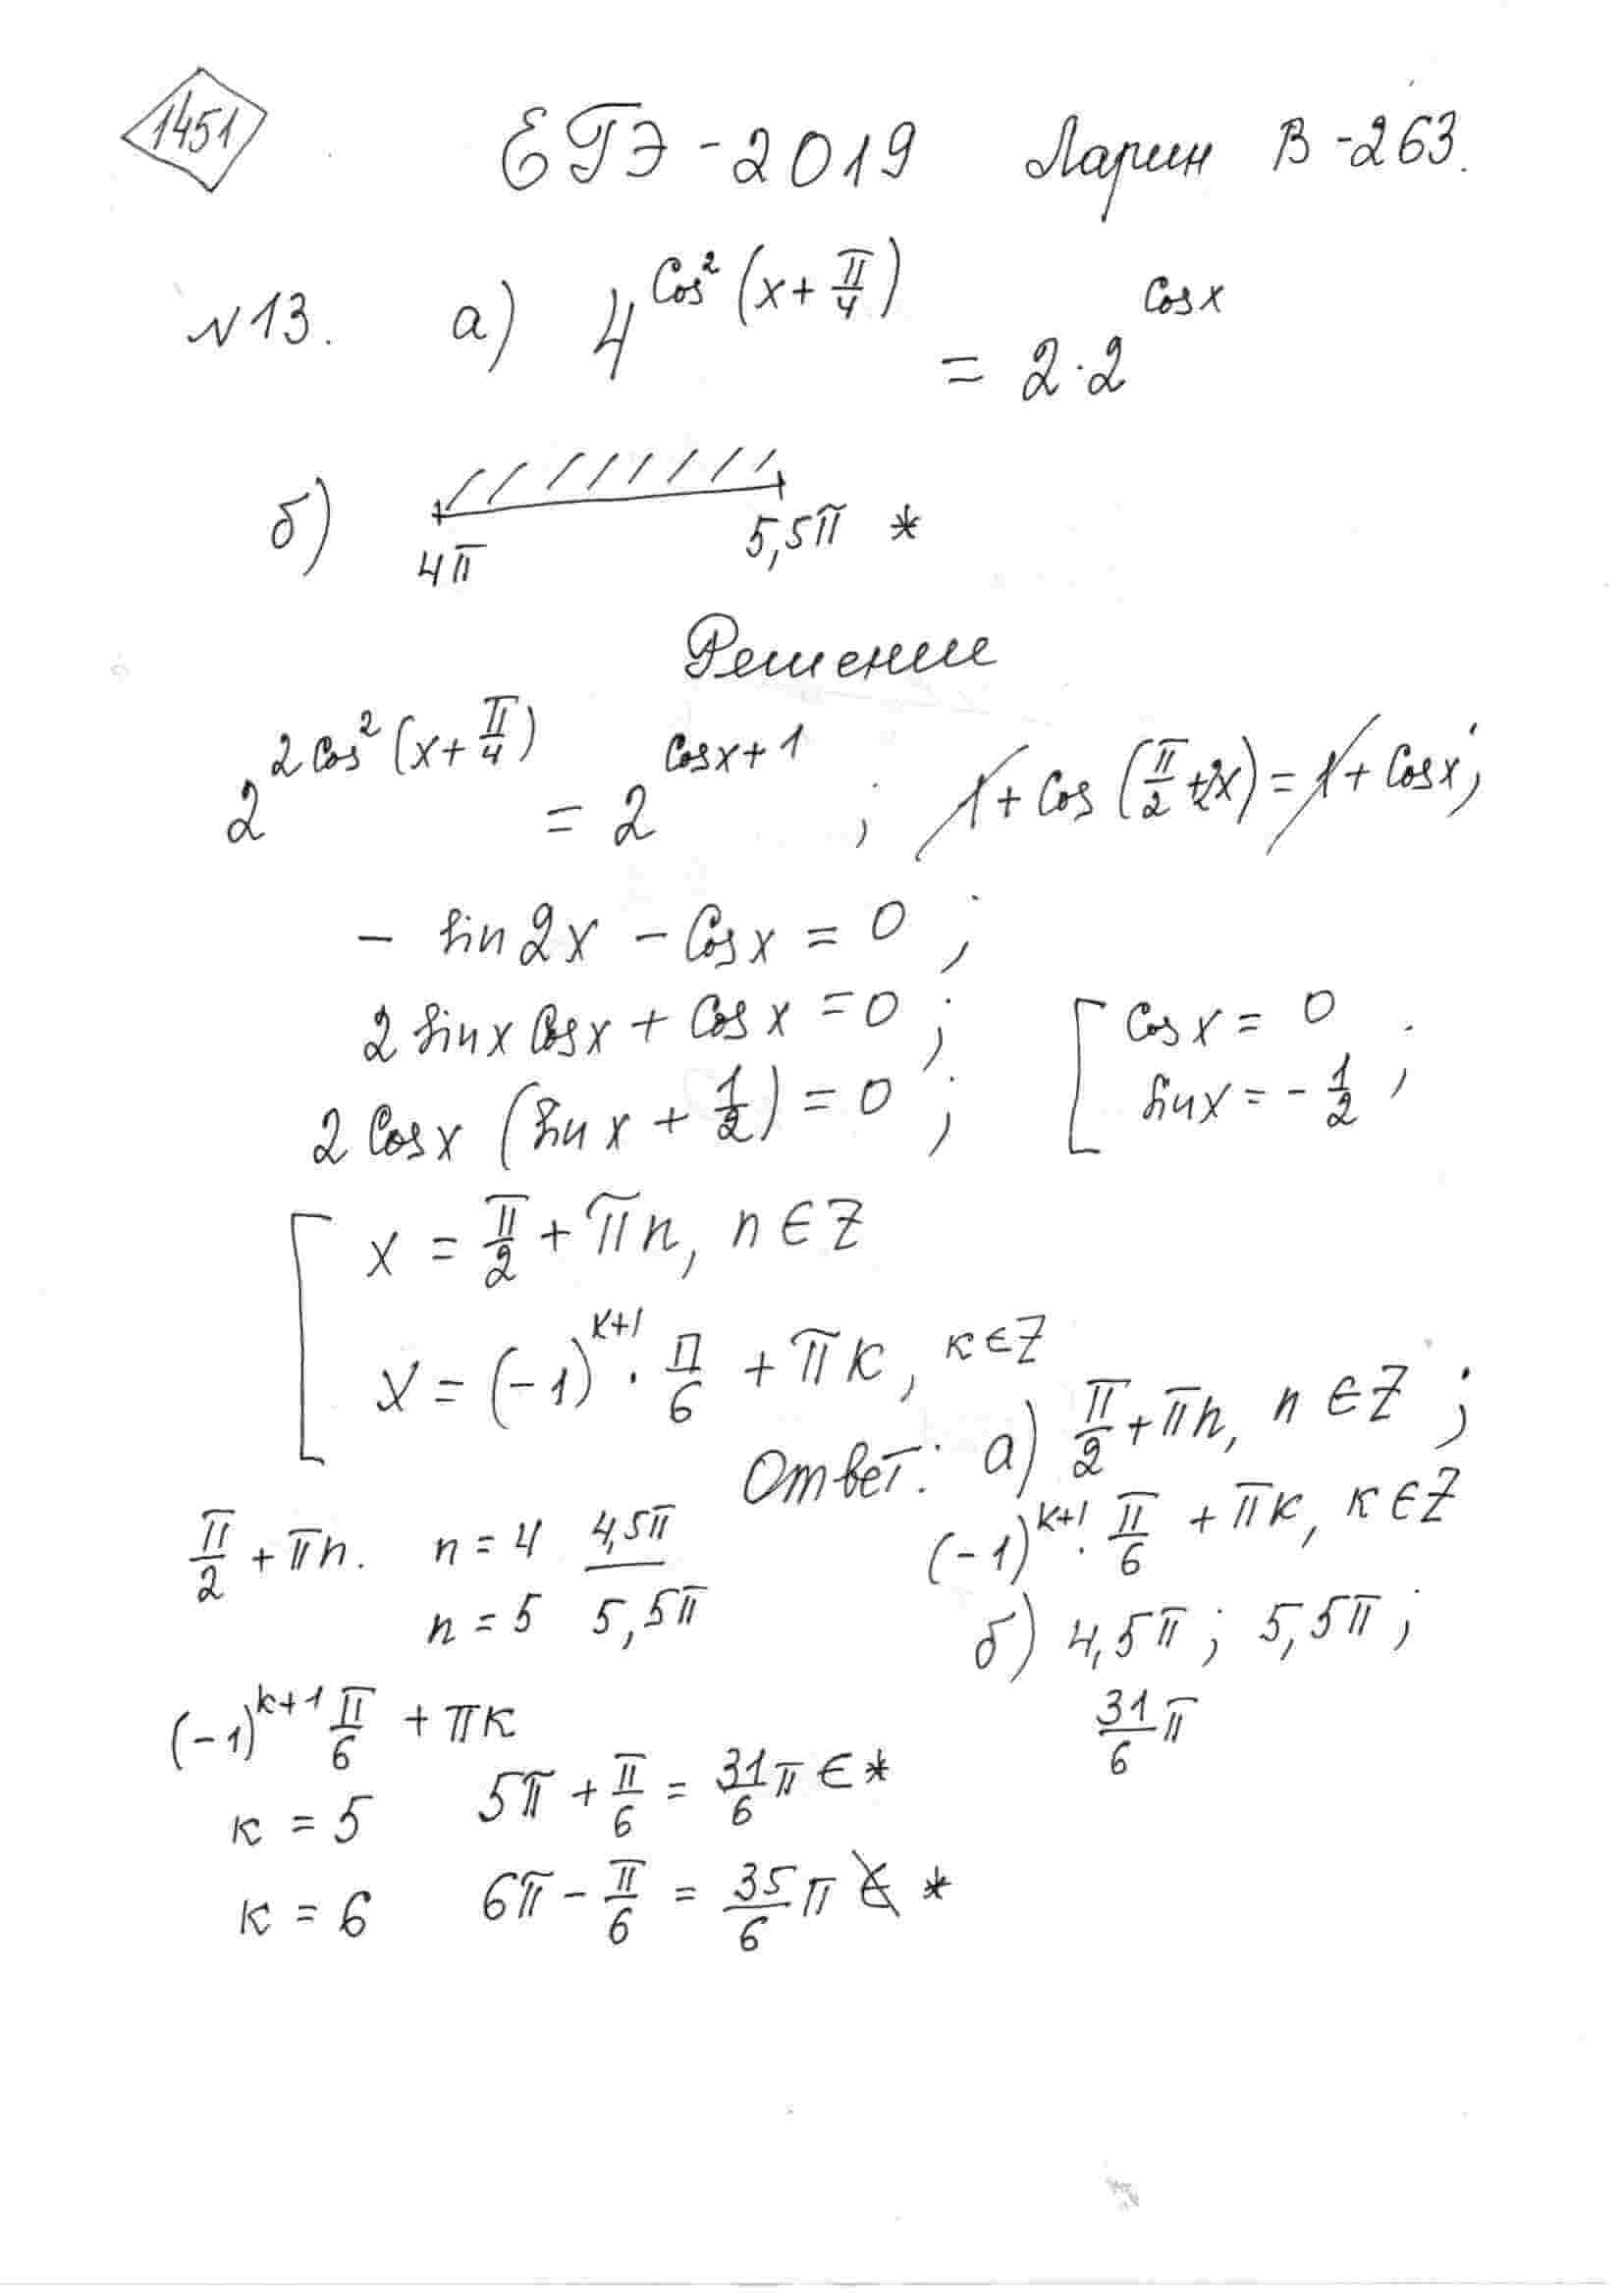 1451 ЕГЭ-2019 Ларин В-263.
№13. а) 4^{Cos²(x+π/4)} = 2·2^{Cosx}
б) 4π 5,5π *
Решение
2^{2Cos²(x+π/4)} = 2^{Cosx+1} ; 1+Cos(π/2+2x)=1+Cosx;
- sin2x - Cosx = 0 ;
2sinxCosx + Cosx = 0 ; [ Cosx = 0
2Cosx (sinx + 1/2) = 0 ; sinx = - 1/2 ;
[ x = π/2 + πn, n∈Z
x = (-1)^{k+1} · π/6 + πk, k∈Z
Ответ: а) π/2 + πn, n∈Z ;
(-1)^{k+1} · π/6 + πk, k∈Z
б) 4,5π ; 5,5π ;
31/6 π
π/2 + πn. n = 4 4,5π
n = 5 5,5π
(-1)^{k+1} π/6 + πk
k = 5 5π + π/6 = 31/6 π ∈ *
k = 6 6π - π/6 = 35/6 π ∉ *